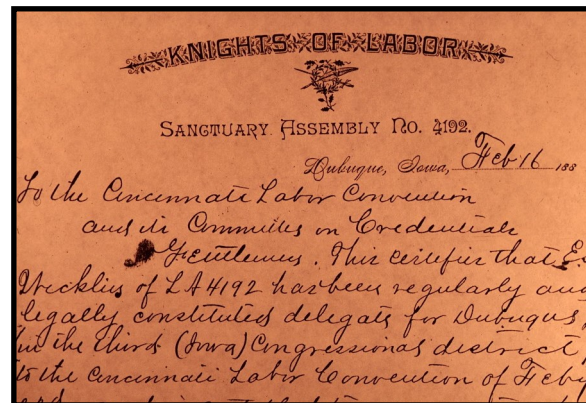 KNIGHTS OF LABOR
SANCTUARY ASSEMBLY No. 4192.
Dubuque, Iowa, Feb 16 188
To the Cincinnati Labor Convention
and its Committee on Credentials
Gentlemen. This certifies that E.
of LA 4192 has been regularly and
legally constituted delegate for Dubuque
in the third (Iowa) Congressional district
to the Cincinnati Labor Convention of Feby